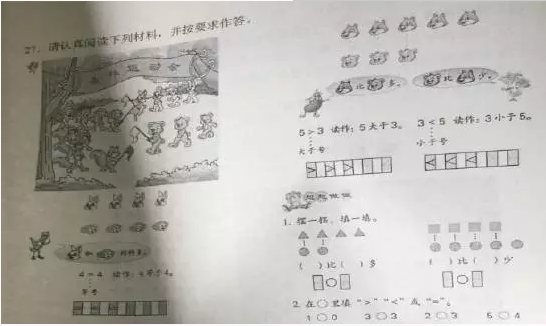 27. 请认真阅读下列材料，并按要求作答。
森林运动会
和 同样多。
4 = 4 读作：4等于4。
等号
比 多。
比 少。
5 > 3 读作：5大于3。
大于号
3 < 5 读作：3小于5。
小于号
想想做做
1. 摆一摆，填一填。
( )比( )多
( )比( )少
2. 在○里填“>”“<”或“=”。
1○0 3○3 2○3 5○4